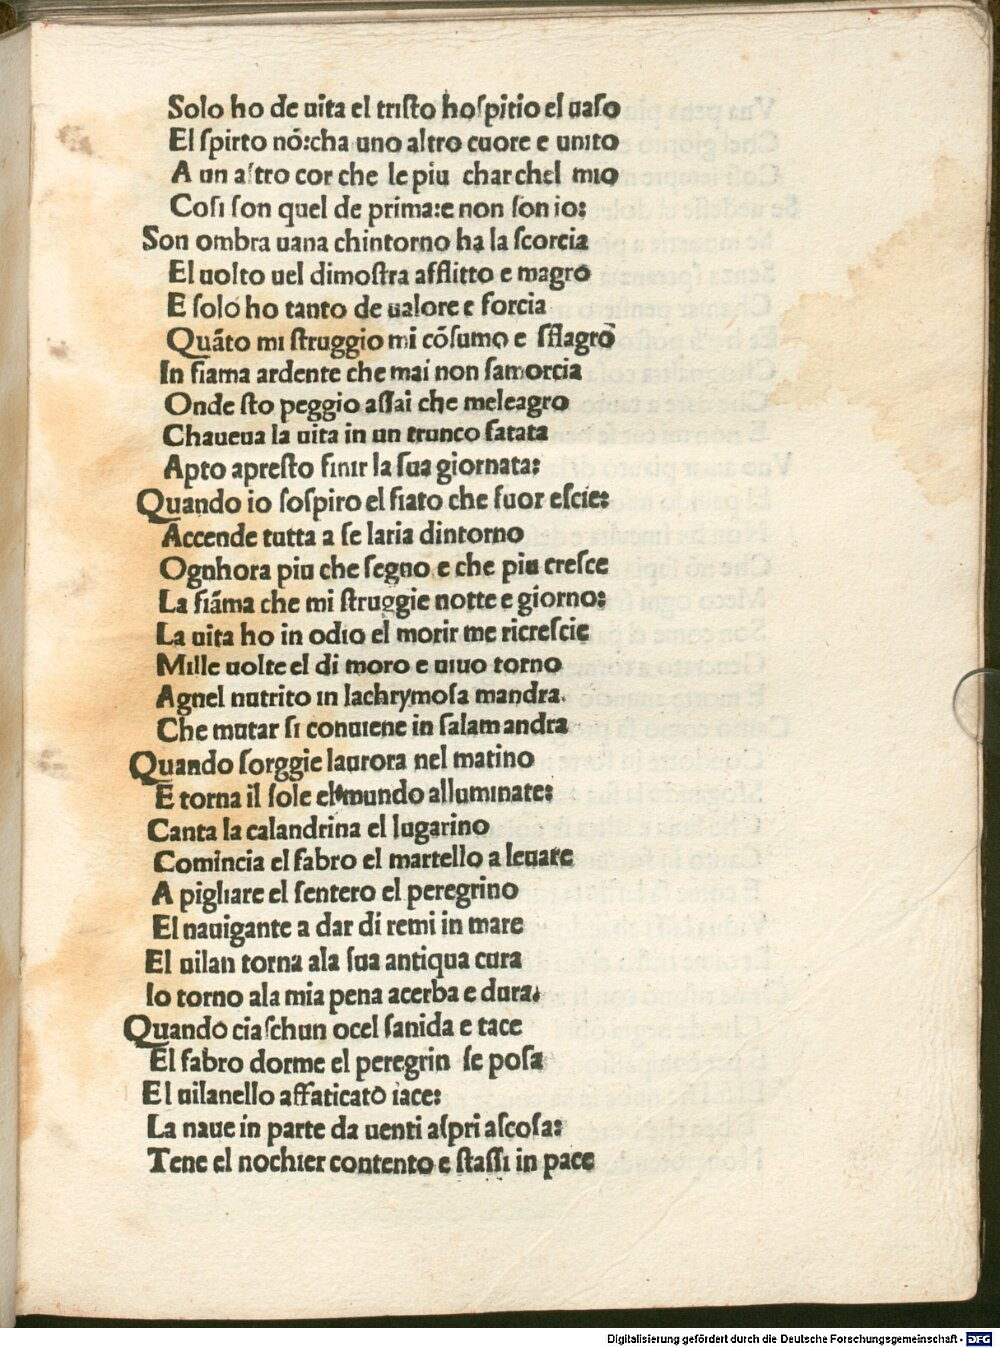 Solo ho de uita el tristo hospitio el uaso
El spirto nō:cha uno altro cuore e unito
A un astro cor che le piu char chel mio
Cosi son quel de prima:e non son io:
Son ombra uana chintorno ha la scorcia
El uolto uel dimostra afflitto e magro
E solo ho tanto de ualore e forcia
Quāto mi struggio mi cōsumo e sflagro
In fiama ardente che mai non samorcia
Onde sto peggio assai che meleagro
Chaueua la uita in un trunco fatata
Apto apresto finir la sua giornata:
Quando io sospiro el fiato che fuor escie:
Accende tutta a se laria dintorno
Ognhora piu che segno e che piu cresce
La fiāma che mi struggie notte e giorno:
La uita ho in odio el morir me ricrescie
Mille uolte el di moro e uiuo torno
Agnel nutrito in lachrymosa mandra.
Che mutar si conuiene in salamandra
Quando sorggie laurora nel matino
E torna il sole el mundo alluminate:
Canta la calandrina el lugarino
Comincia el fabro el martello a leuare
A pigliare el sentero el peregrino
El nauigante a dar di remi in mare
El uilan torna ala sua antiqua cura
Io torno ala mia pena acerba e dura.
Quando ciaschun ocel sanida e tace
El fabro dorme el peregrin se posa
El uilanello affaticato iace:
La naue in parte da uenti aspri ascosa:
Tene el nochier contento e stassi in pace
Digitalisierung gefördert durch die Deutsche Forschungsgemeinschaft - DFG